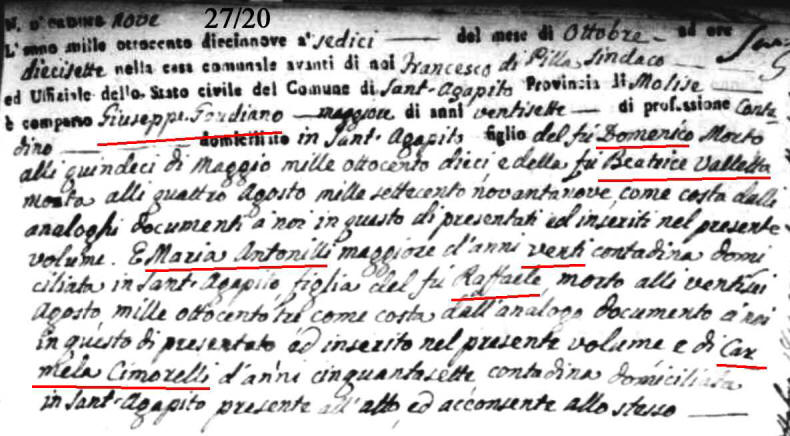 27/20
N. D'ORDINE nove
L'anno mille ottocento diecinnove a' sedici del mese di Ottobre ad ore
diecisette nella casa comunale avanti di noi Francesco di Pilla Sindaco
ed Uffiziale dello Stato civile del Comune di Sant-Agapito Provincia di Molise
è comparso Giuseppe maggiore di anni ventisette di professione Conta
dino domiciliato in Sant-Agapito figlio del fù Domenico Morto
alli quindeci di Maggio mille ottocento dieci e della fù Beatrice Valletta
morta alli quattro Agosto mille settecento novantanove, come costa dalli
analoghi documenti à noi in questo dì presentati ed inseriti nel presente
volume. E Maria Antonilli maggiore d'anni venti contadina domi
ciliata in Sant-Agapito, figlia del fù Raffaele, morto alli
Agosto mille ottocento tre come costa dall'analogo documento à noi
in questo dì presentato ed inserito nel presente volume e di Car
mela Cimorelli d'anni cinquantasette contadina domiciliata
in Sant-Agapito presente all'atto, ed acconsente allo stesso